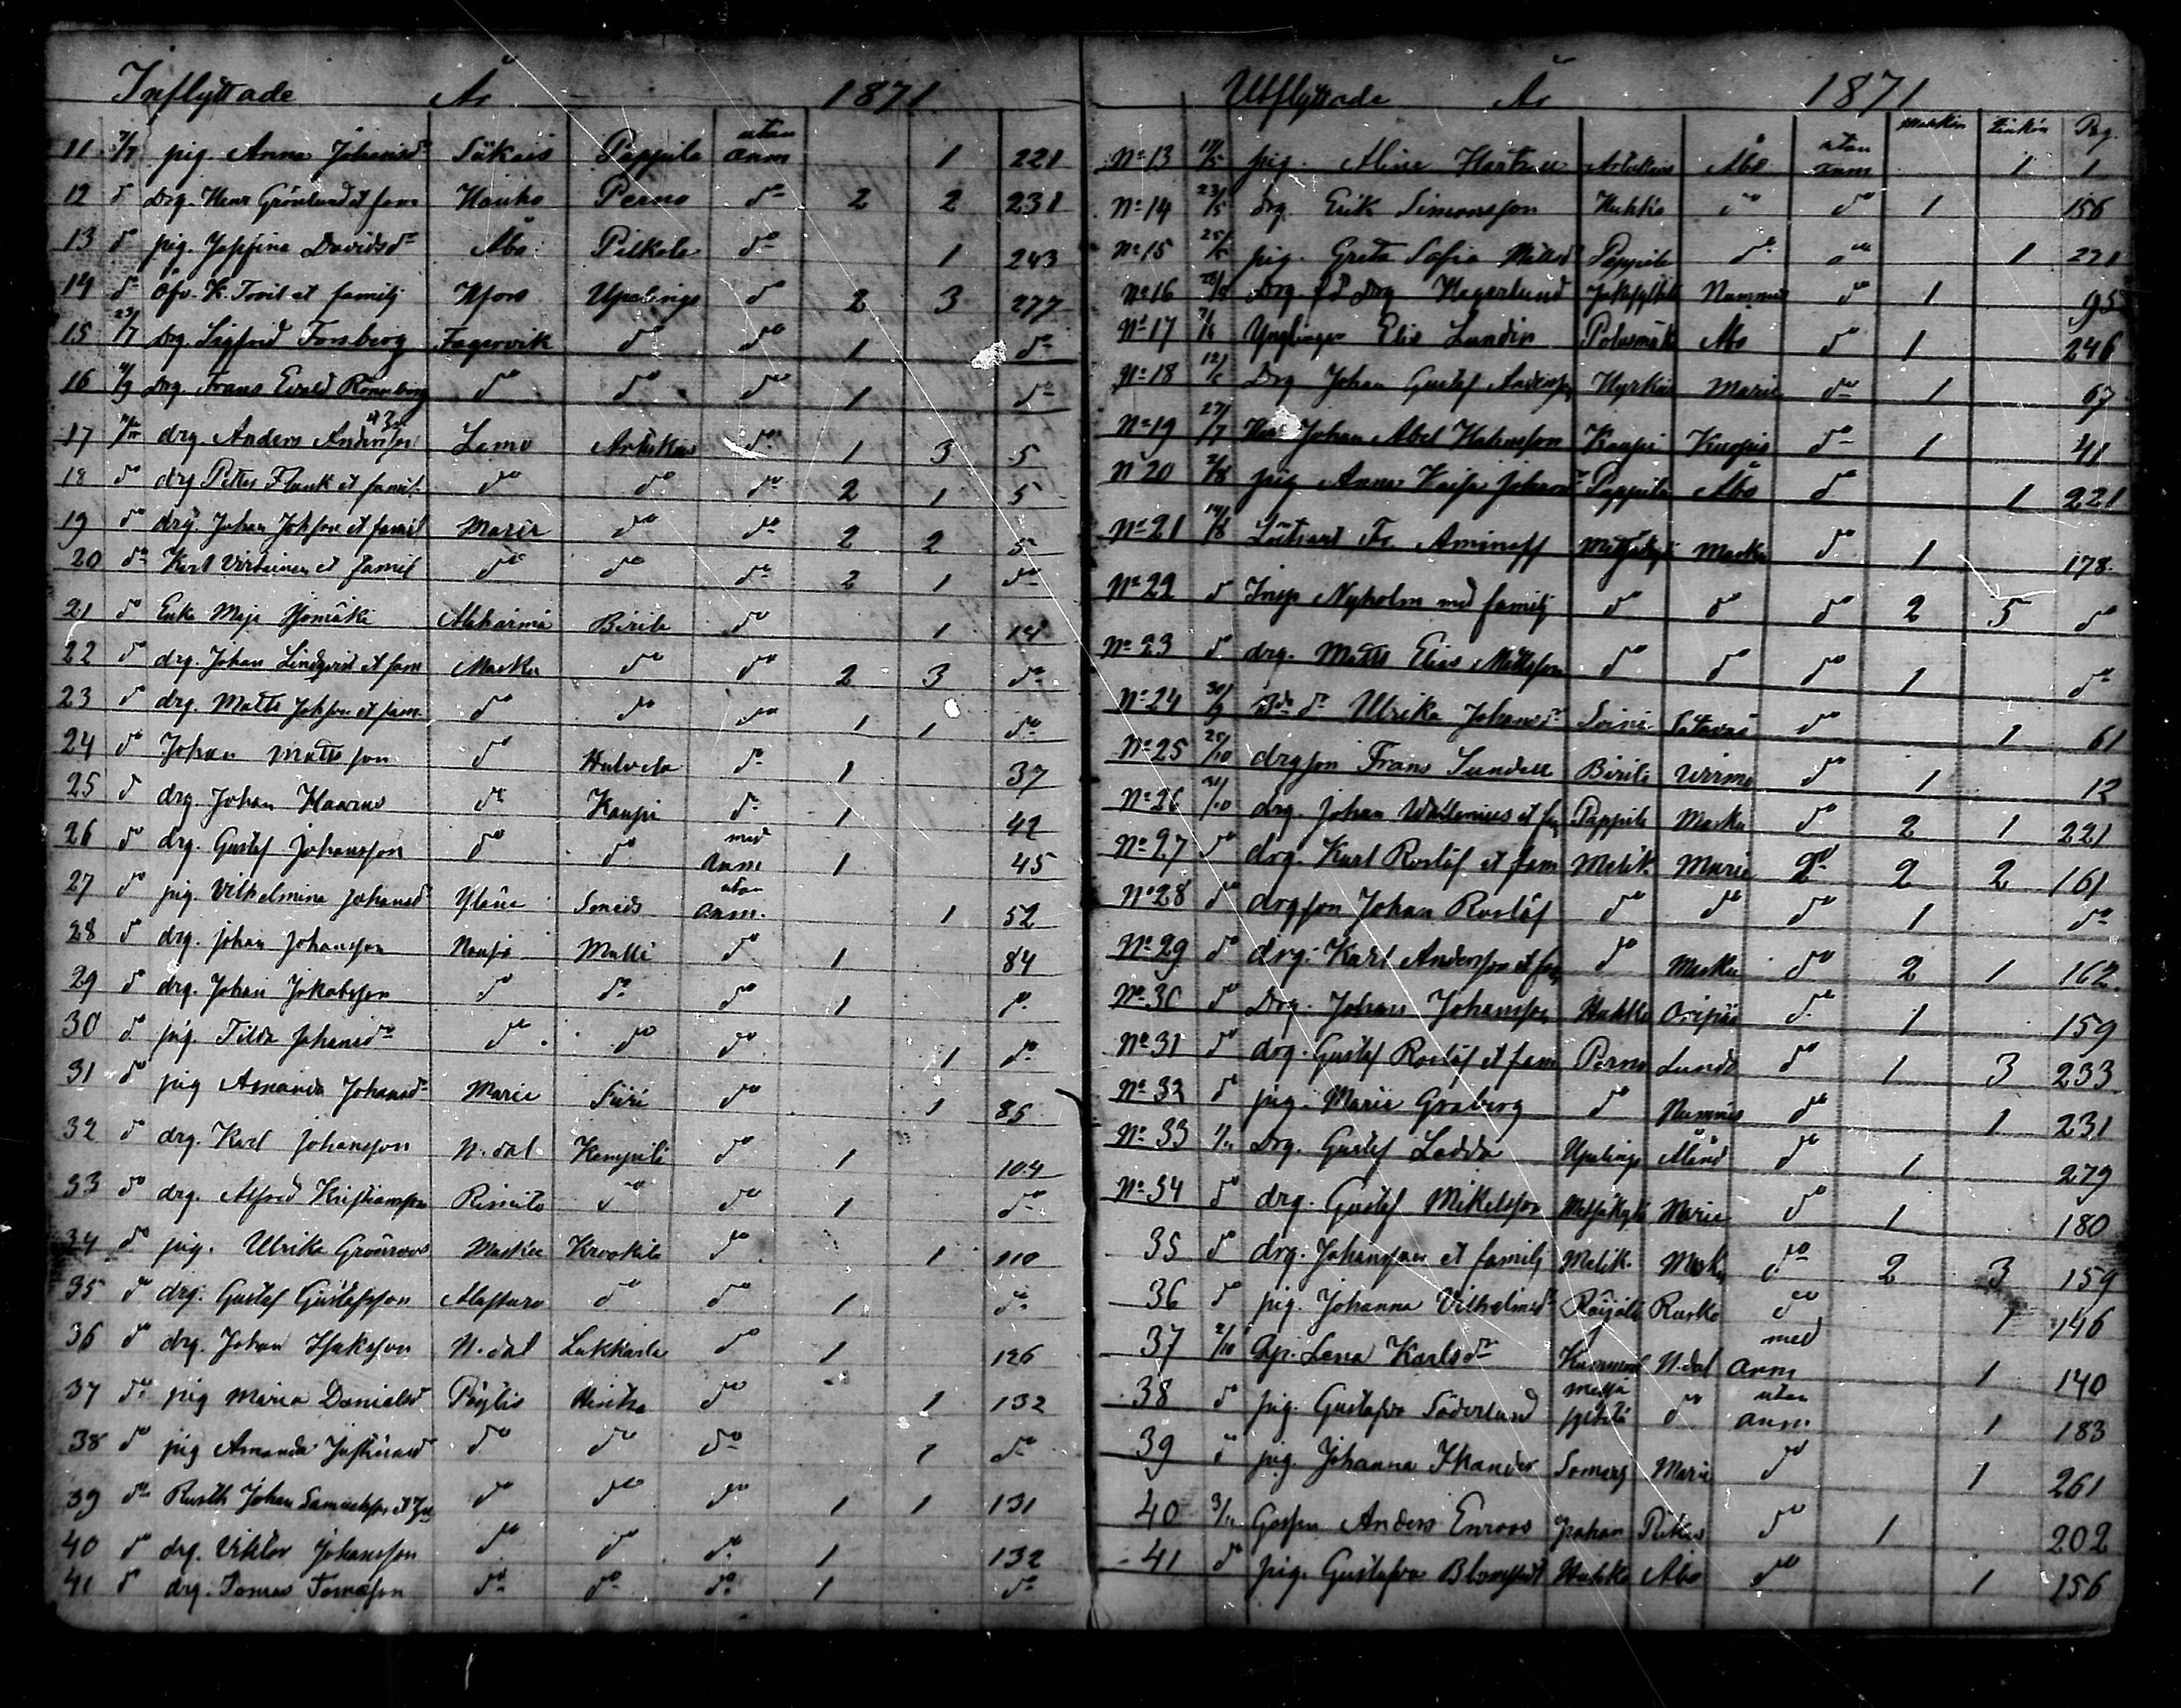 Inflyttade År 1871
11 7/7 pig. Anna Johansd Pappila utan anm 1 221
12 do drg. Henr Grönlund et fam Hauho Perno do 2 2 231
13 do pig. Josefina Davidsdr Åbo Pilkola do 1 243
14 do K. et familj Hfors Upalinge do 2 3 277
15 23/7 drg. Sigfrid Forsberg Fagervik do do 1 do
16 drg. Frans Evald Rönnberg do do do 1 do
17 drg. Anders Andersson Lemo Artukais do 1 3 5
18 do drg Petter Flank et famil. do do do 2 1 5
19 do drg. Johan Johsson et famil Marie do do 2 2 5
20 do Karl Virtainen et famil do do do 2 1 do
21 do Enka Maja Alahärmä Birila do 1 14
22 do drg. Johan Lindqvist et fam Masku do do 2 3 do
23 do drg. Matts Johsson et fam. do do do 1 1 do
24 do Johan Mattsson do Hulvela do 1 37
25 do drg. Johan Haarno do Kaupi do 1 42
26 do drg. Gustaf Johansson do do med anm 1 45
27 do pig. Vilhelmina Johansd Yläne Smeds utan anm. 1 52
28 do drg. Johan Johansson Nousis Malli do 1 84
29 do drg. Johan Jakobsson do do do 1 do
30 do pig. Tilda Johansdr do do do 1 do
31 do pig Amanda Johansdr Marie do 1 85
32 do drg. Karl Johansson N.dal Kempili do 1 104
33 do drg. Alfred Kristiansson Rimito do do 1 do
34 do pig. Ulrika Grönroos Masku Krookila do 1 110
35 do drg. Gustaf Gustafsson Alastaro do do 1 do
36 do drg. Johan Isaksson N.dal Lukkarla do 1 126
37 do pig Maria Danielsd Pöytis do 1 132
38 do pig Amanda do do do 1 do
39 do Johan Samuelsson do do do 1 1 131
40 do drg. Viktor Johansson do do do 1 132
41 do drg. Tomas Tomasson do do do 1 do
Utflyttade År 1871
Mankön Qinkön Pag.
No 13 pig. Alina Artukais Åbo utan anm 1 1
No 14 23/5 drg. Erik Simonsson Hukko do do 1 156
No 15 pig. Greta Sofia Mattsd Pappila do do 1 221
No 16 Drg. Hagerlund Nummis do 1 95
No 17 Ynglingen Elis Lundin Polusmäki Åbo do 1 246
No 18 Drg Johan Gustaf Andersson Marie do 1 67
No 19 27/7 Johan Abel Kaupi Kuopio do 1 41
No 20 pig Anna Kaisa Johansdr Pappila Åbo do 1 221
No 21 Löitnant Fr. Aminoff Masku do 1 178
No 22 do Insp Nyholm med familj do do do 2 5 do
No 23 do drg. Matts Elias Mattsson do do do 1 do
No 24 30/9 Ulrika Johansdr do 1 61
No 25 25/10 drgson Frans Sundell Birila Virmo do 1 12
No 26 drg. Johan Wallenius et fam Pappila Masku do 2 1 221
No 27 do drg. Karl Roslöf et fam Mälik. Marie do 2 2 161
No 28 do drgson Johan Roslöf do do do 1 do
No 29 do drg. Karl Andersson et fam do Masku do 2 1 162
No 30 do Drg. Johan Johansson Hukko Oripää do 1 159
No 31 do drg. Gustaf Roslöf et fam Perno Lundo do 1 3 233
No 32 do pig. Maria Graberg do Nummis do 1 231
No 33 1/11 Drg. Gustaf Ladda Upalinge Åland do 1 279
No 34 do drg. Gustaf Mikelsson Metsäkylä Marie do 1 180
35 do drg. Johansson et familj Mälik. Masku do 2 3 159
36 do pig. Johanna Vilhelmsdr Rusko do 1 146
37 2/10 Qp. Lena Karlsdr N.dal med anm 1 140
38 do pig. Gustafva Söderlund do utan anm 1 183
39 do pig. Johanna Skander Marie do 1 261
40 3/11 Gossen Anders Enroos Pikis do 1 202
41 do pig. Gustafva Blomqvist Hukko Åbo do 1 156